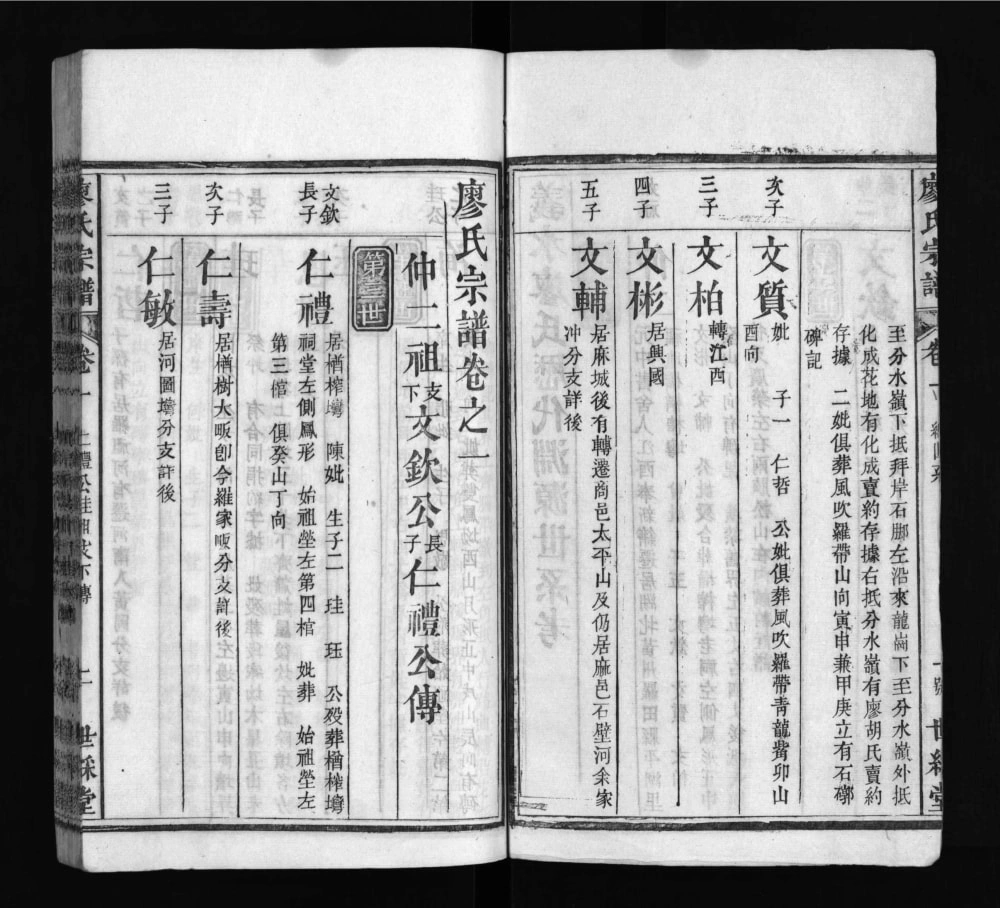 至分水嶺下抵拜岸石脚左沿來龍崗下至分水嶺外抵
化成花地有化成賣約存據右抵分水嶺有廖胡氏賣約
存據　二妣俱葬風吹羅帶山向寅申兼甲庚立有石
碑記
次子
文質
妣　子一　仁哲　公妣俱葬風吹羅帶青龍嘴卯山
酉向
三子
文柏
轉江西
四子
文彬
居興國
五子
文輔
居麻城後有轉遷商邑太平山及仍居麻邑石壁河余家
冲分支詳後
廖氏宗譜卷之一
仲二祖支下文欽公長子仁禮公傳
第叁世
文欽
長子
仁禮
居楢榨塆　陳妣　生子二　珪　珏　公歿葬楢榨塆
祠堂左側鳳形　始祖塋左第四棺　妣葬　始祖塋左
第三棺　俱癸山丁向
次子
仁壽
居楢樹大畈卽今羅家畈分支詳後
三子
仁敏
居河圖塆分支詳後
廖氏宗譜
卷一
世綵堂